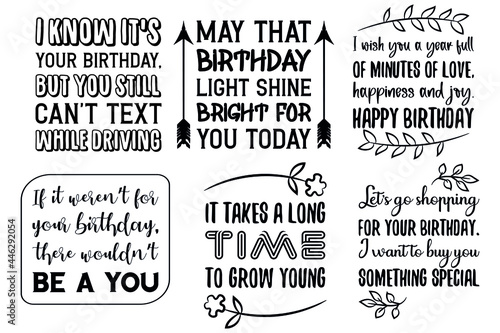 I KNOW IT'S
YOUR BIRTHDAY,
BUT YOU STILL
CAN'T TEXT
WHILE DRIVING
MAY THAT
BIRTHDAY
LIGHT SHINE
BRIGHT FOR
YOU TODAY
I wish you a year full
OF MINUTES OF LOVE,
happiness and joy.
HAPPY BIRTHDAY
If it weren't for
your birthday,
there wouldn't
BE A YOU
IT TAKES A LONG
TIME
TO GROW YOUNG
Let's go shopping
FOR YOUR BIRTHDAY.
I want to buy you
SOMETHING SPECIAL
Adobe Stock | #446292054